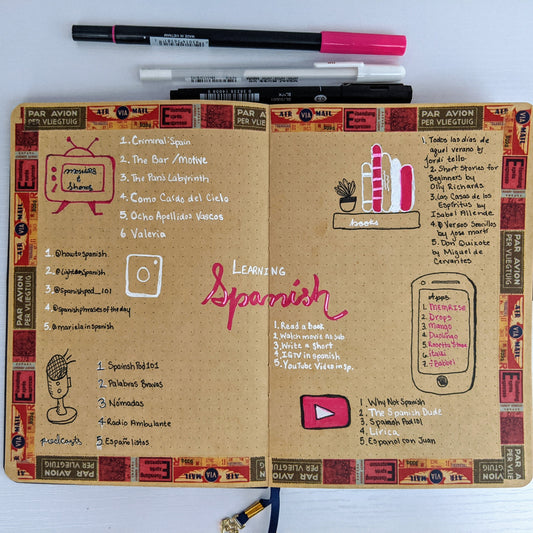 movies & shows
1. Criminal: Spain
2. The Bar / motive
3. The Pan's Labyrinth
4. Como Caído del Cielo
5. Ocho Apellidos Vascos
6 Valeria
1. @howtospanish
2. @lightonspanish
3. @Spanishpod_101
4. @spanishphrasesoftheday
5. @mariela in Spanish
podcasts
1 Spainsh Pod 101
2 Palabras Bravas
3 Nómadas
4 Radio Ambulante
5 Españolistos
LEARNING
Spanish
1. Read a book
2. Watch movie no sub
3. Write a short
4. IGTV in spanish
5. YouTube Video in Sp.
books
1. Todos los días de
aquel verano by
Jordi tello
2. Short Stories for
Beginners by
Olly Richards
3. Las Casas de los
Espíritus by
Isabel Allende
4. Versos Sencillos
by jose martí
5. Don Quixote
by Miguel de
Cervantes
Apps
1. MEMRISE
2. Drops
3. Mango
4. Duolingo
5. Rosetta Stone
6. italki
7. Babbel
1. Why Not Spanish
2. The Spanish Dude
3. Spanish Pod 101
4. Lirica
5. Espanol con Juan
PAR AVION
PER VLIEGTUIG
AIR VIA MAIL